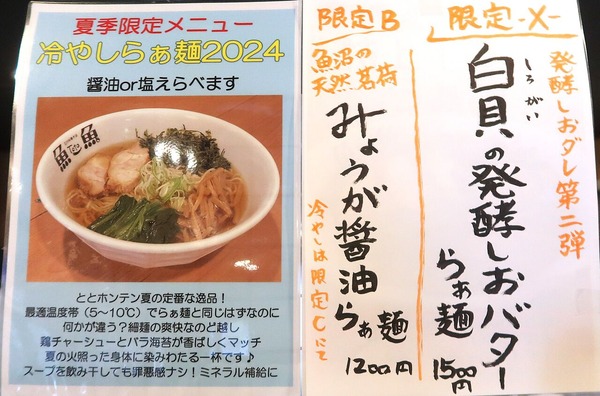 夏季限定メニュー
冷やしらぁ麺2024
醤油or塩えらべます
魚魚
ととホンテン夏の定番な逸品！
最適温度帯（5～10℃）でらぁ麺と同じはずなのに
何かが違う？細麺の爽快なのど越し
鶏チャーシューとバラ海苔が香ばしくマッチ
夏の火照った身体に染みわたる一杯です♪
スープを飲み干しても罪悪感ナシ！ミネラル補給に
発酵しおダレ第二弾
限定-X-
白貝の発酵しおバター
しろがい
らぁ麺
1500円
限定B
魚沼の
天然茗荷
みょうが醤油らぁ麺
1200円
冷やしは限定Cにて